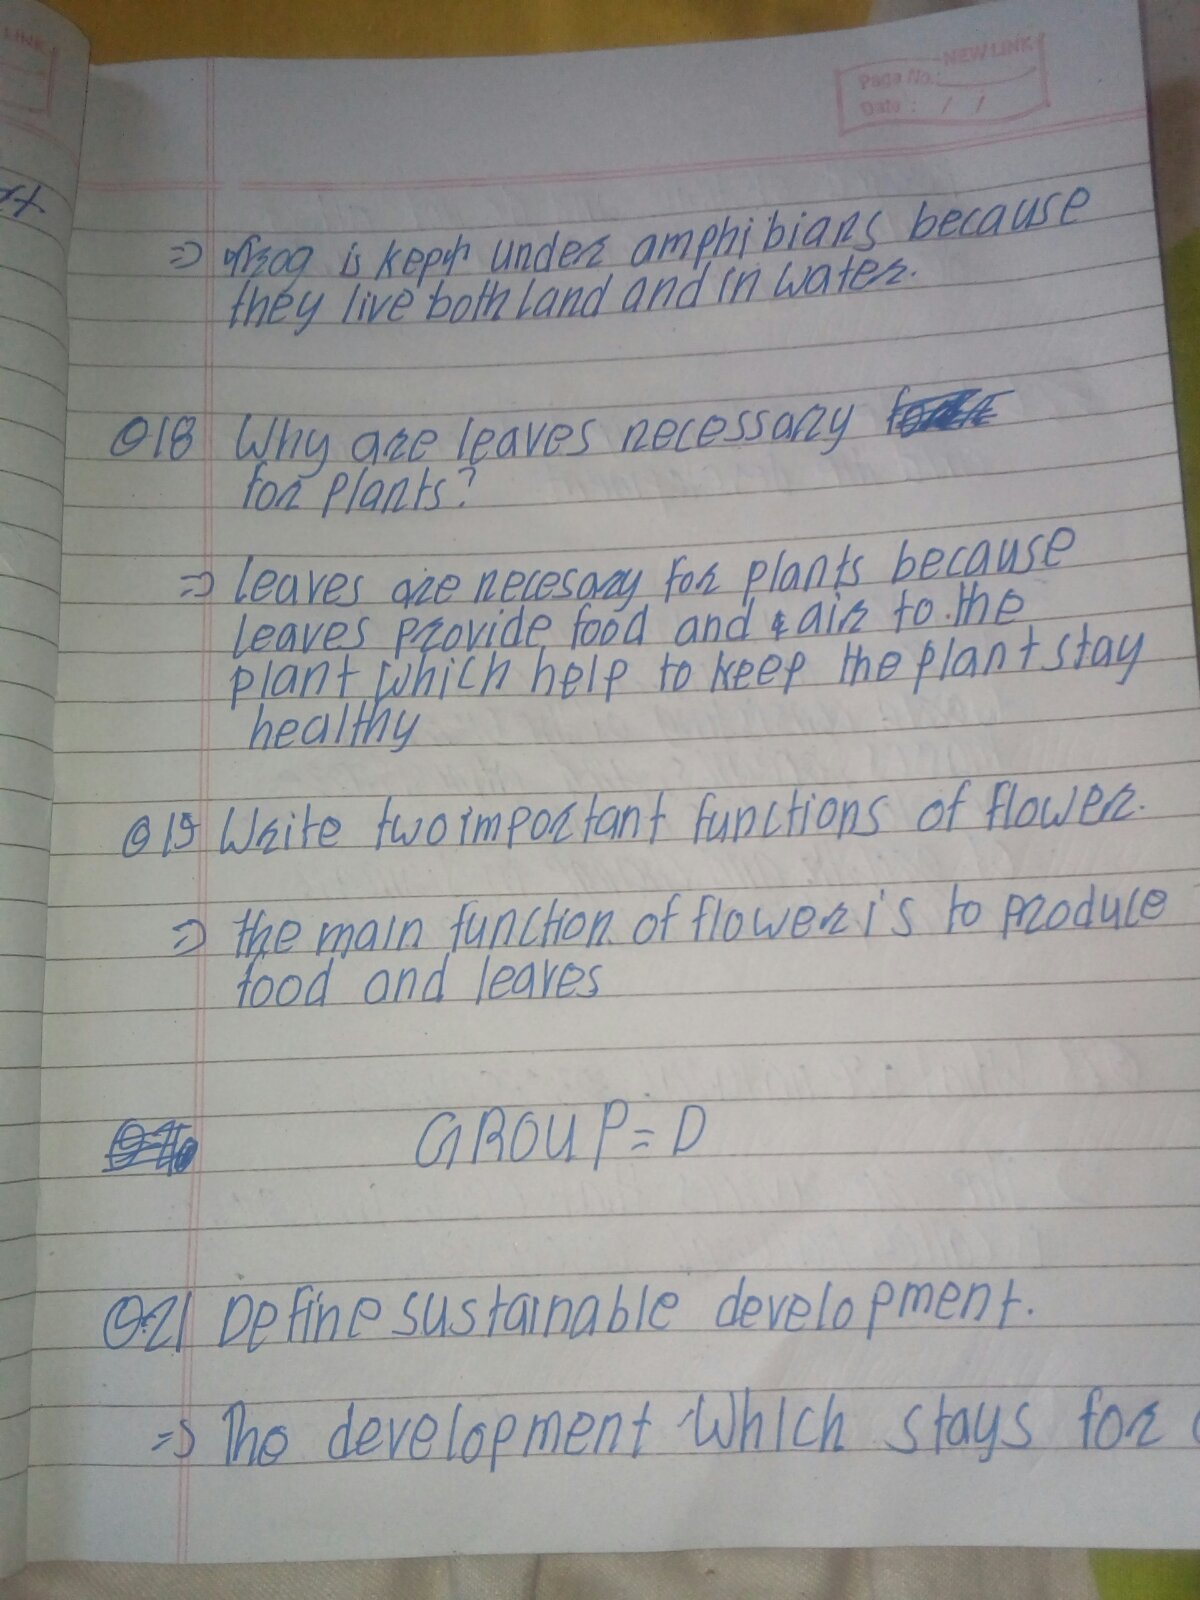 LINK
NEW LINK
Page No.:
Date : / /
=> frog is kept under amphibians because
they live both land and in water.
Q18 Why are leaves necessary
for plants?
=> leaves are necesary for plants because
leaves provide food and air to the
plant which help to keep the plant stay
healthy
Q19 Write two important functions of flower.
=> the main function of flower is to produce
food and leaves
GROUP = D
Q.21 Define sustainable development.
=> The development which stays for